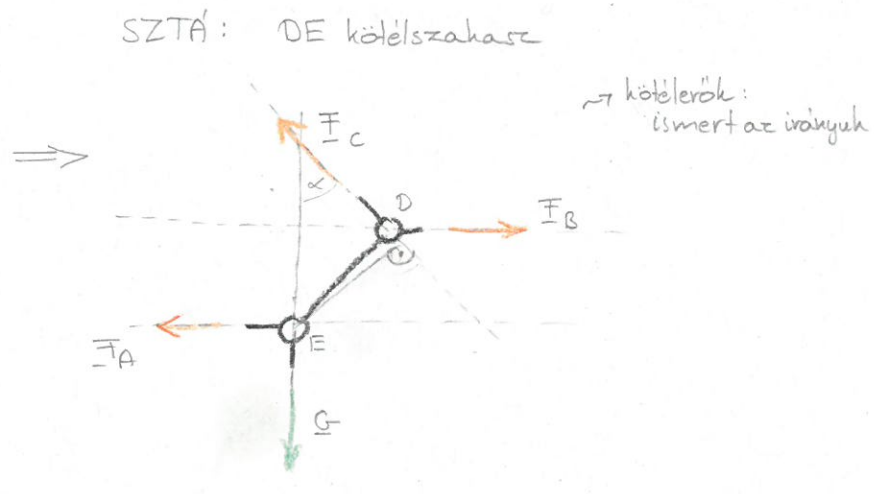 SZTÁ: DE kötélszakasz
⇒
~→ kötélerők:
ismert az irányuk
F_C
α
D
F_B
F_A
E
G